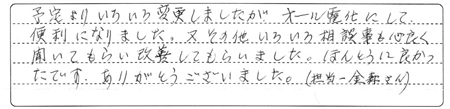 予定よりいろいろ変更しましたが オール電化にして
便利になりました。又その他いろいろ相談事も心良く
聞いてもらい改善してもらいました。ほんとうに良かっ
たです。ありがとうございました。(担当ー金森さん)